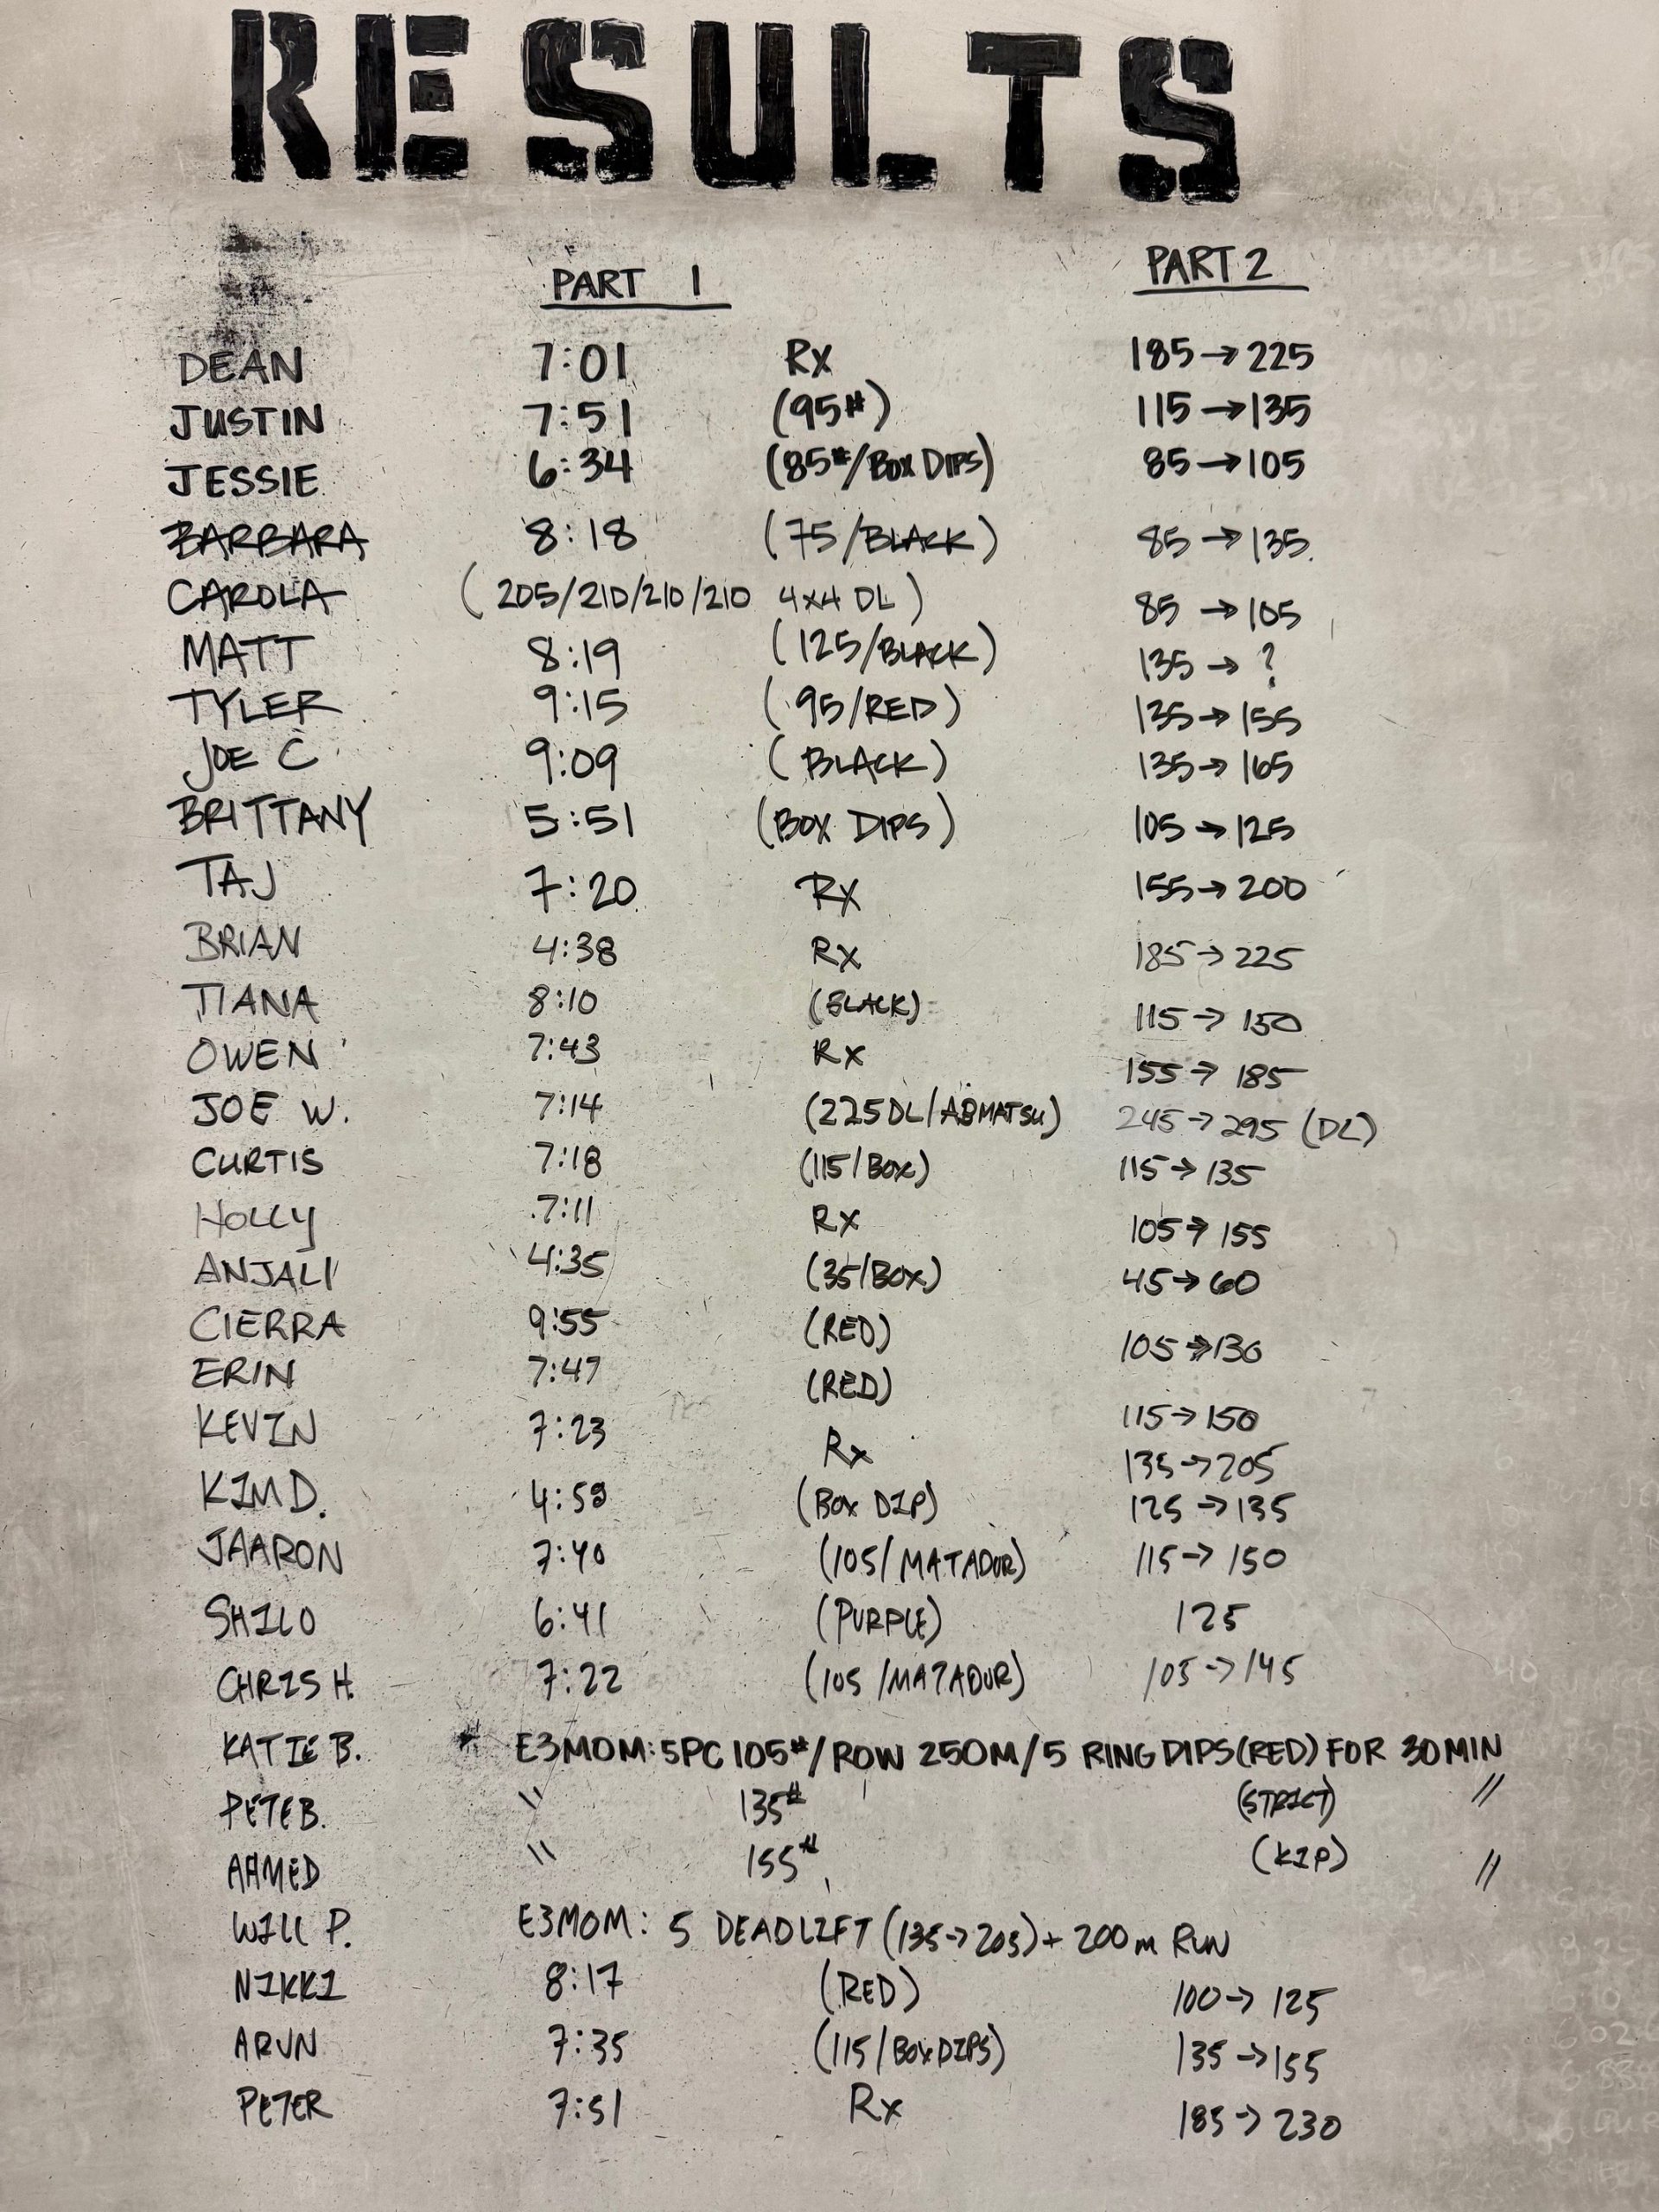 RESULTS
PART 1 PART 2
DEAN 7:01 Rx 185→225
JUSTIN 7:51 (95#) 115→135
JESSIE 6:34 (85#/BOX DIPS) 85→105
BARBARA 8:18 (75/BLACK) 85→135
CAROLA (205/210/210/210 4x4 DL) 85→105
MATT 8:19 (125/BLACK) 135→?
TYLER 9:15 (95/RED) 135→155
JOE C 9:09 (BLACK) 135→165
BRITTANY 5:51 (BOX DIPS) 105→125
TAJ 7:20 Rx 155→200
BRIAN 4:38 Rx 185→225
TIANA 8:10 (BLACK) 115→150
OWEN 7:43 Rx 155→185
JOE W. 7:14 (225DL/ABMATSU) 245→295 (DL)
CURTIS 7:18 (115/BOX) 115→135
HOLLY 7:11 Rx 105→155
ANJALI 4:35 (35/BOX) 45→60
CIERRA 9:55 (RED) 105→130
ERIN 7:47 (RED) 115→150
KEVIN 7:23 Rx 135→205
KIM D. 4:58 (BOX DIP) 125→135
JAARON 7:40 (105/MATADOR) 115→150
SHILO 6:41 (PURPLE) 125
CHRIS H. 7:22 (105/MATADOR) 105→145
KATIE B. * E3MOM: 5PC 105#/ROW 250M/5 RING DIPS(RED) FOR 30MIN
PETE B. " 135# (STRICT) "
AHMED " 155# (KIP) "
WILL P. E3MOM: 5 DEADLIFT (135→205)+ 200m RUN
NIKKI 8:17 (RED) 100→125
ARUN 7:35 (115/BOX DIPS) 135→155
PETER 7:51 Rx 185→230